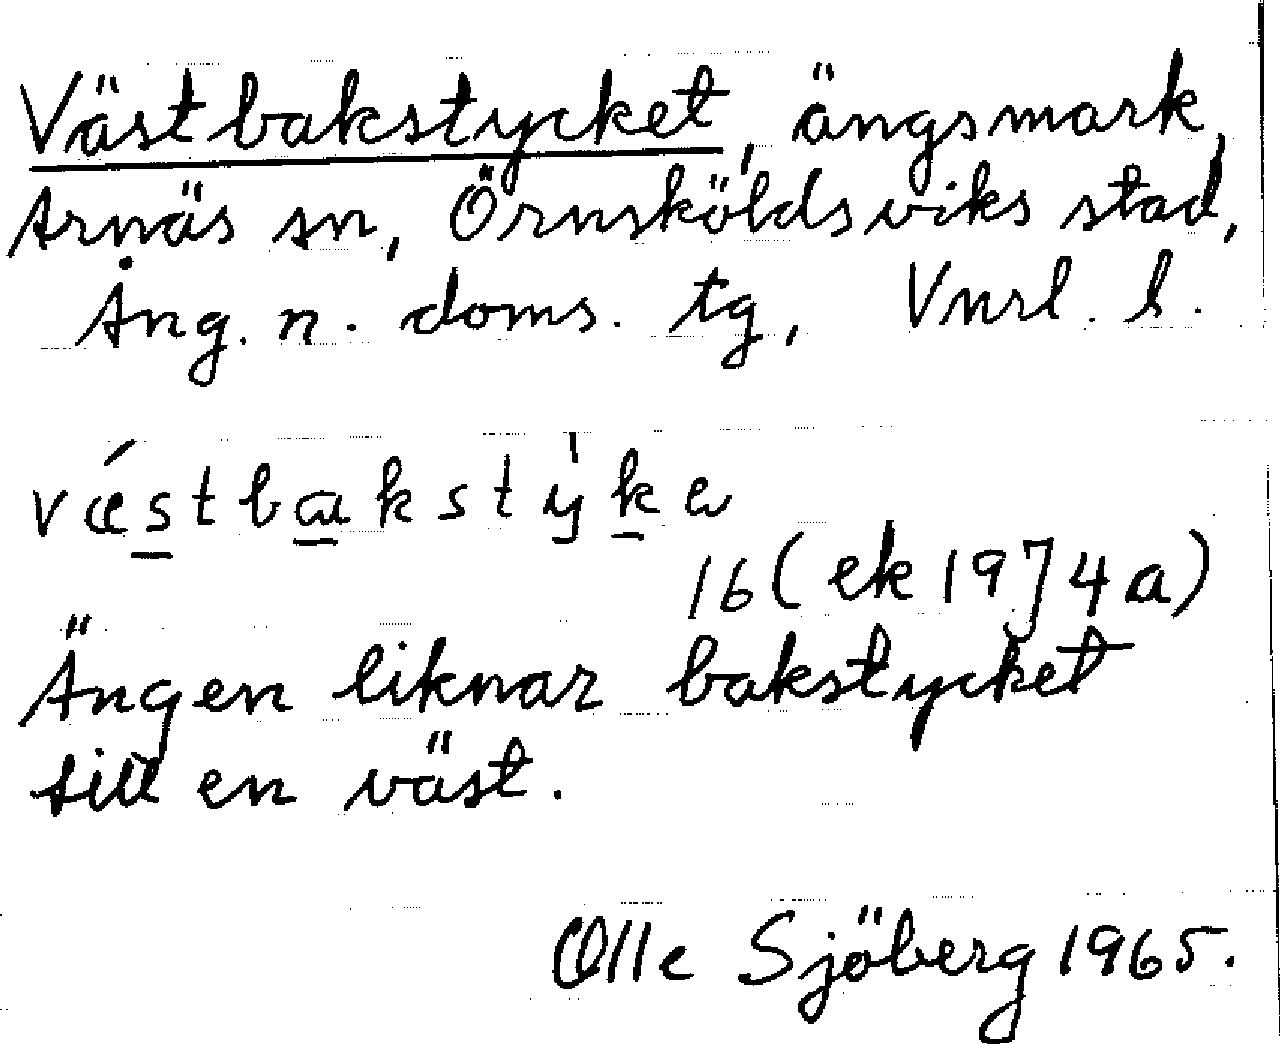 Västbakstycket, ängsmark,
Arnäs sn, Örnsköldsviks stad,
Ång. n. doms. tg, Vnrl. l.
vǽstbakstỳkə
16 (ek 1974 a)
Ängen liknar bakstycket
till en väst.
Olle Sjöberg 1965.